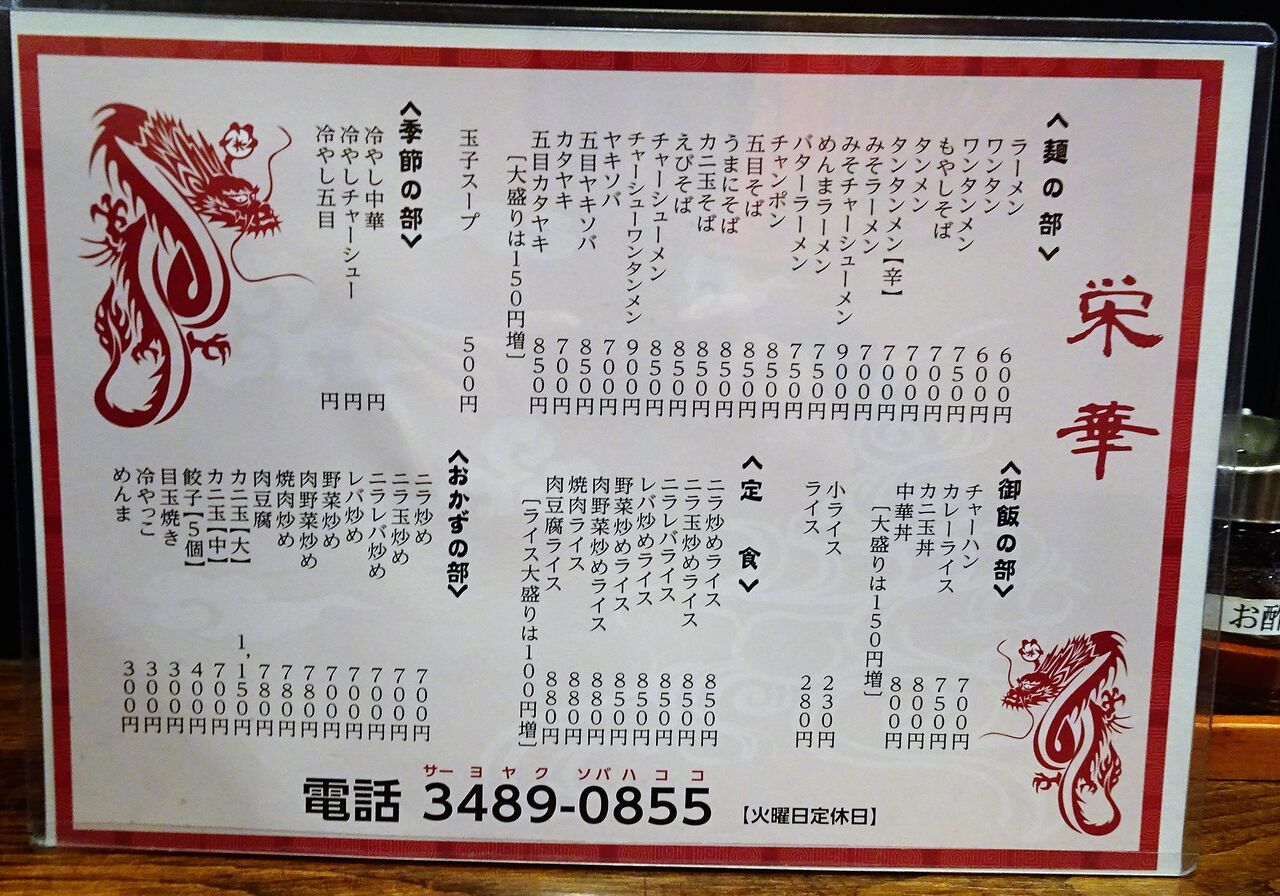 栄華
〈麺の部〉
ラーメン 600円
ワンタン 600円
ワンタンメン 750円
もやしそば 700円
タンメン 700円
タンタンメン【辛】 700円
みそラーメン 700円
みそチャーシューメン 900円
めんまラーメン 750円
バターラーメン 750円
チャンポン 850円
五目そば 850円
うまにそば 850円
カニ玉そば 850円
えびそば 850円
チャーシューメン 850円
チャーシューワンタンメン 900円
ヤキソバ 700円
五目ヤキソバ 850円
カタヤキ 700円
五目カタヤキ 850円
［大盛りは150円増］
玉子スープ 500円
〈季節の部〉
冷やし中華 円
冷やしチャーシュー 円
冷やし五目 円
〈御飯の部〉
チャーハン 700円
カレーライス 750円
カニ玉丼 800円
中華丼 800円
［大盛りは150円増］
小ライス 230円
ライス 280円
〈定 食〉
ニラ炒めライス 850円
ニラ玉炒めライス 850円
ニラレバライス 850円
レバ炒めライス 850円
野菜炒めライス 850円
肉野菜炒めライス 880円
焼肉ライス 880円
肉豆腐ライス 880円
［ライス大盛りは100円増］
〈おかずの部〉
ニラ炒め 700円
ニラ玉炒め 700円
ニラレバ炒め 700円
レバ炒め 700円
野菜炒め 700円
肉野菜炒め 780円
焼肉炒め 780円
肉豆腐 780円
カニ玉【大】 1,150円
カニ玉【中】 700円
餃子【5個】 400円
目玉焼き 300円
冷やっこ 300円
めんま 300円
サーヨヤク ソバハココ
電話 3489-0855 【火曜日定休日】
お酢